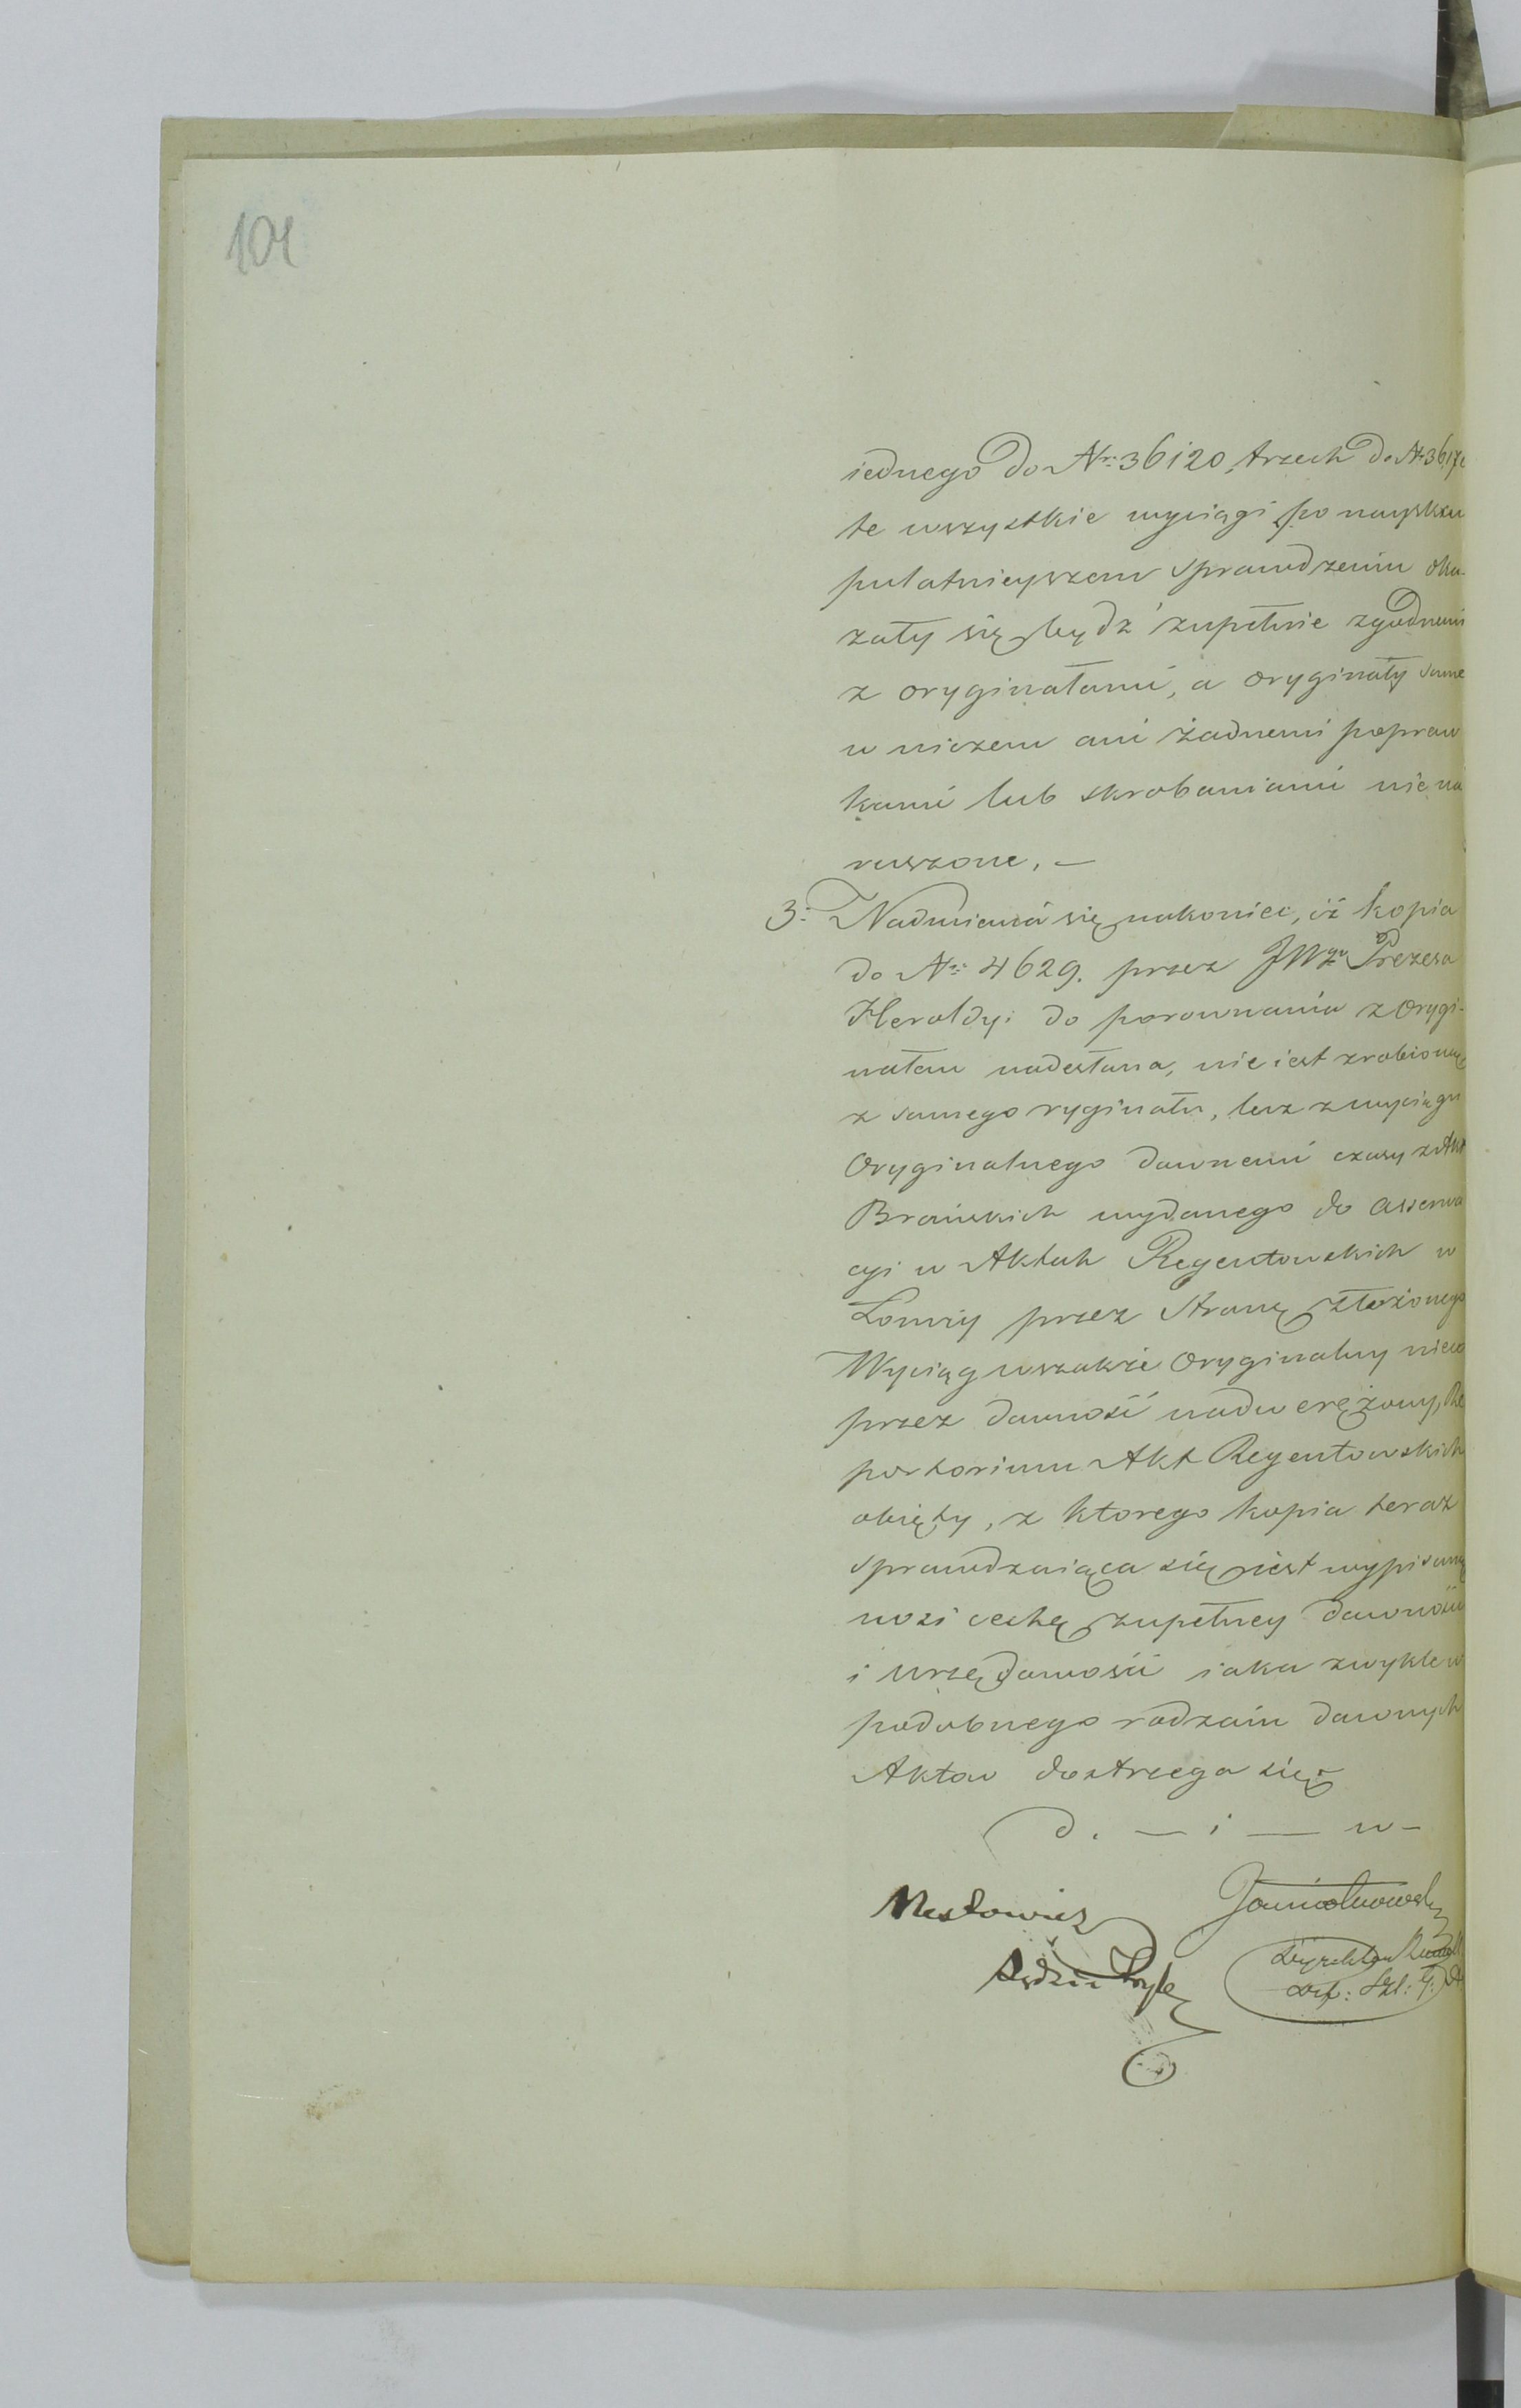 104
iednego do Nr: 36120, trzech do Nr 3617
te wszystkie wyciągi po nayskru
pulatnieyszem sprawdzeniu oka-
zały się bydź zupełnie zgodnemi
z oryginałami, a oryginały same
w niczem ani żadnemi popraw
kami lub skrobaniami nie na
ruszone. —
3: Nadmienia się nakoniec, iż kopia
do Nr: 4629. przez JWgo Prezesa
Heroldyi do porownania z orygi-
nałem nadesłana, nie iest zrobioną
z samego ryginału, lecz z wyciągu
Oryginalnego dawnemi czasy z Akt
Brańskich wydanego do asserwa
cyi w Aktach Regentowskich w
Łomży przez Stronę złożonego
Wyciąg wszakże Oryginalny nieco
przez dawność nadwerężony, Re
portorium Akt Regentowskich
obięty, z ktorego kopia teraz
sprawdzaiąca się iest wypisaną
nosi cechę zupełney dawności
i urzędowości iaka zwykle w
podobnego rodzaiu dawnych
Aktow dostrzega się
d. — i — w —
Sędzia Tryb
Jamiołkowski